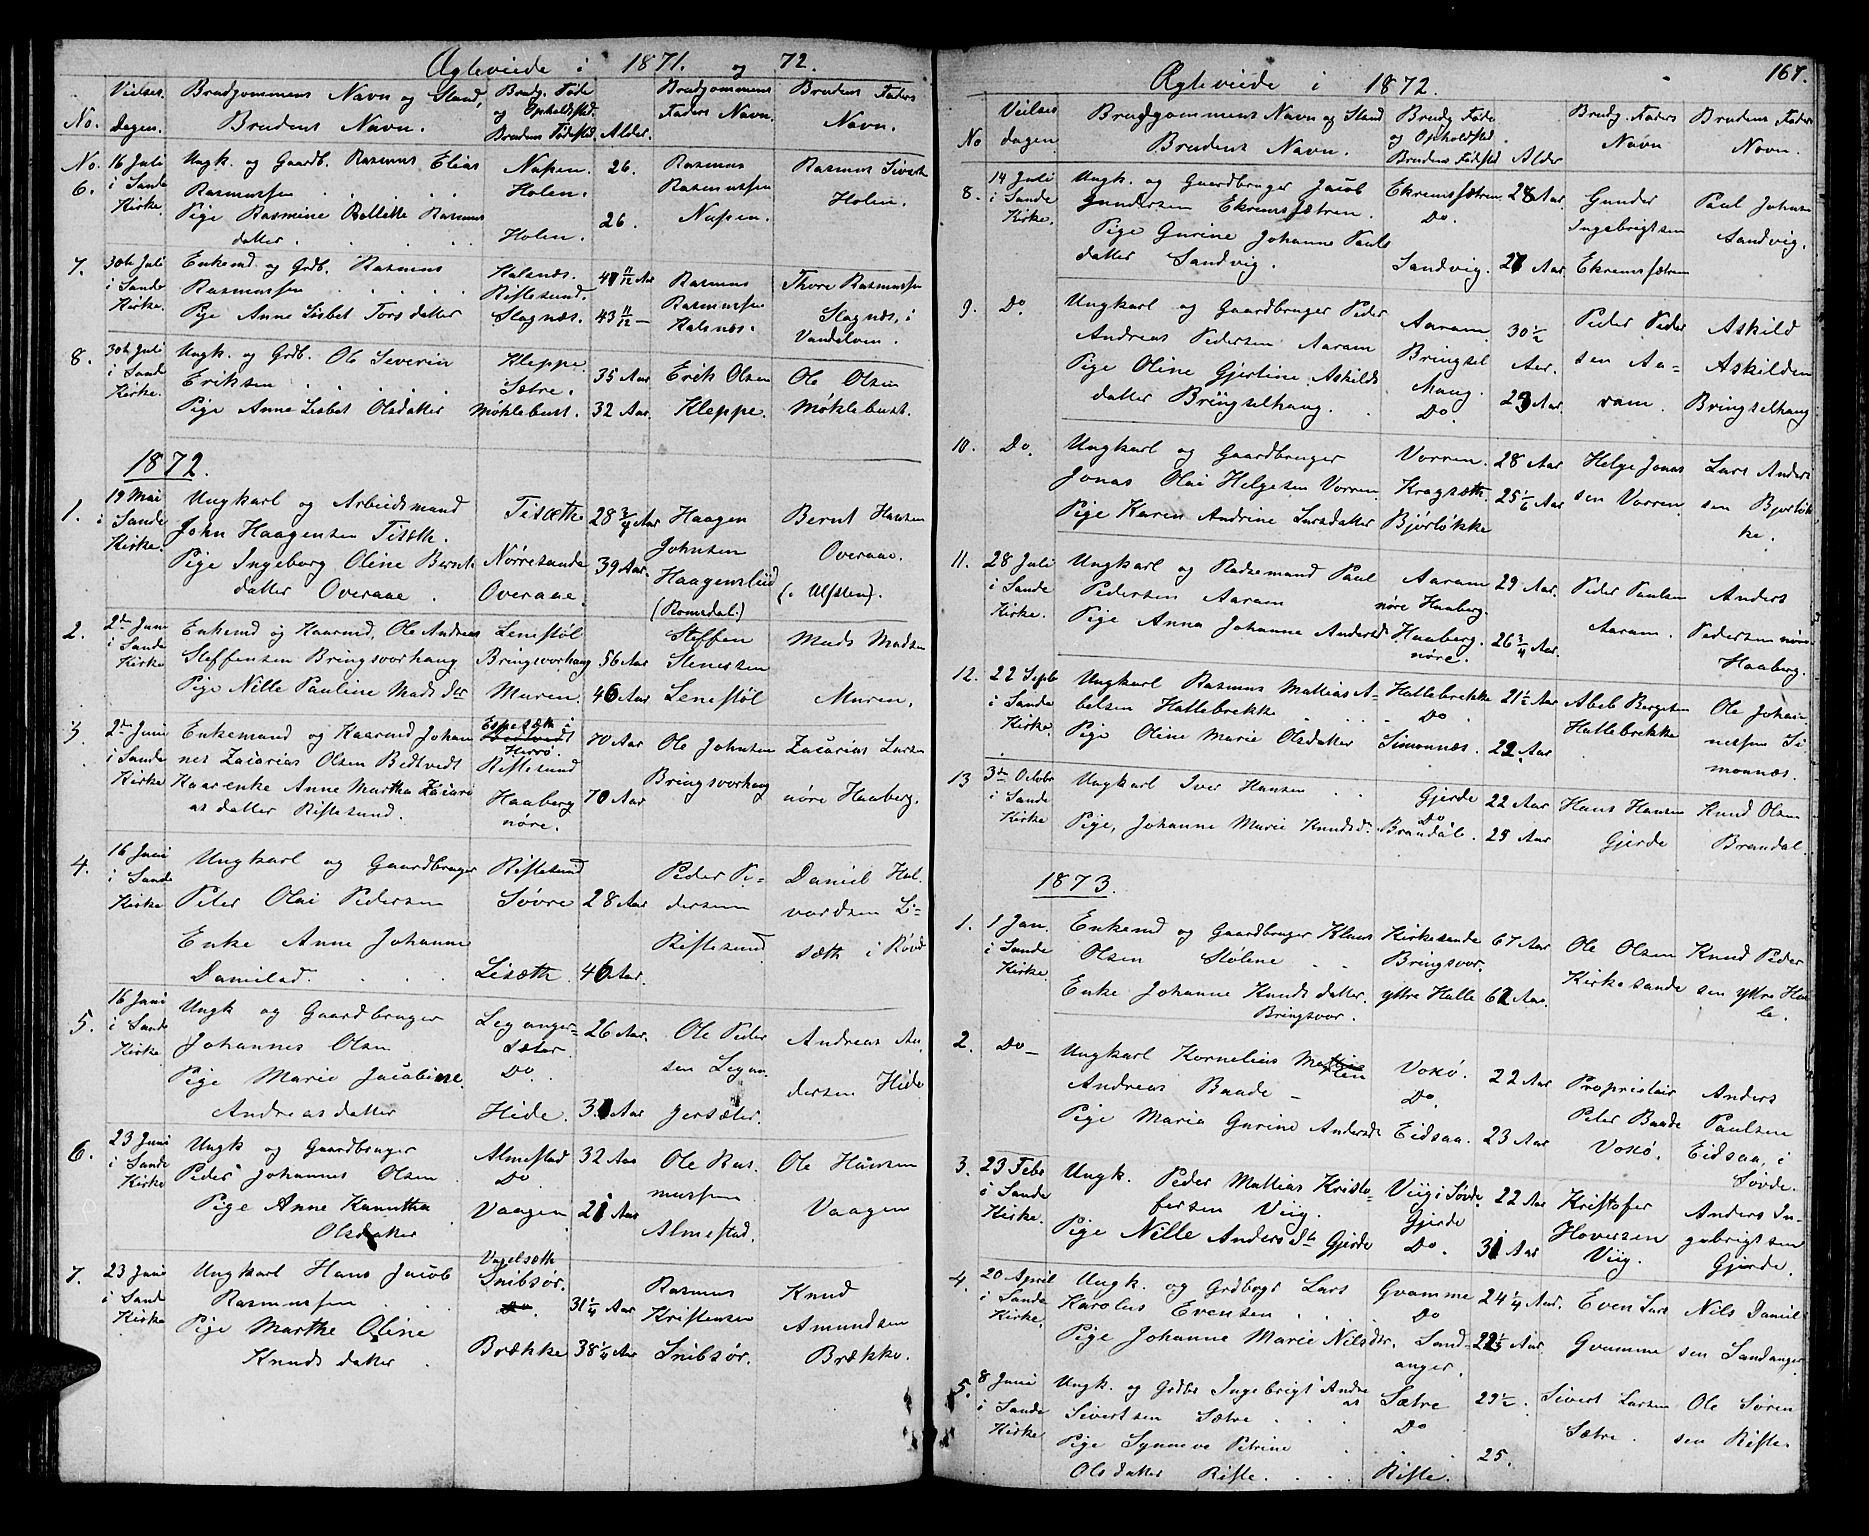 Ægteviede i 1871. og 72.
No. Vielses Dagen. Brudgommens Navn og Stand, Brudens Navn. Brudg. Føde og Opholdsted. Brudens Fødested. Alder. Brudgommens Faders Navn. Brudens Faders Navn.
No. 6. 16 Juli i Sande Kirke. Ungk. og Gaardb. Rasmus Elias Rasmussen Nupen. Holen. 26. Rasmus Rasmussen Nupen. Rasmus Sivert Holen.
Pige Rasmine Rasmus datter. Holen. 26.
7. 30te Juli i Sande Kirke. Enkemd. og Grdb. Rasmus Rasmussen Kalsnæs. Riflesund. 41 11/12 Aar Rasmus Rasmussen Kalsnæs. Thore Rasmussen Slagnæs, i Vandelven.
Pige Anne Lisbet Torsdatter Slagnæs. 43 11/12
8. 30te Juli i Sande Kirke. Ungk. og Grdb. Ole Severin Eriksen Kleppe. Sætre. 35 Aar Erik Olsen Kleppe. Ole Olsen Møklebust.
Pige Anne Lisbet Olsdatter Møklebust. 32 Aar.
1872.
1. 19 Mai i Sande Kirke. Ungkarl og Arbeidsmand John Haagensen Tisæth. Tisæth 28 3/4 Aar Haagen Johnsen Haagenslid (Romsdal.) Bernt Hansen Overaae. (i Ulfsten).
Pige Ingeborg Oline Bernts datter Overaae. Nørresande Overaae. 39 Aar.
2. 2den Juni i Sande Kirke Enkemd og Kaarmd, Ole Andreas Steffensen Bringsvorhaug Leneftøl Bringsvorhaug 56 Aar Steffen Stenessen Leneftøl Mads Madsen Muren.
Pige Nille Pauline Mads dtr Muren. 46 Aar
3. 2den Juni i Sande Kirke Enkemand og Kaarmd Johannes Zacarias Olsen Bedtvedt Espesæth i Herrø. Riflesund 70 Aar Ole Johnsen Bringsvorhaug Zacarias Larsen nøre Haaberg.
Kaarenke Anne Martha Zacarias datter Riflesund. Haaberg nøre. 70 Aar
4. 16 Juni i Sande Kirke Ungkarl og Gaardbruger Peter Olai Pedersen Riflesund Søvre 28 Aar Peder Pedersen Riflesund. Daniel Halvardsen Lisæth i Røvd
Enke Anne Johanne Danielsd. Lisæth. 46 Aar.
5. 16 Juni i Sande Kirke Ungk og Gaardbruger Johannes Olsen Leganger-Sæter Do. 26 Aar. Ole Peder sen Leganjersæter. Andreas Andersen Hide
Pige Marie Jacobine Andreasdatter Hide. 31 Aar
6. 23 Juni i Sande Kirke Ungk og Gaardbruger Peder Johannes Olsen Almestad Do 32 Aar Ole Rasmussen Almestad. Ole Hansen Vaagen
Pige Anne Kanutha Olsdatter Vaagen 21 Aar
7. 23 Juni i Sande Kirke Ungkarl Hans Jacob Rasmussen Vagelsæth Snibsør. Do. 31 1/4 Aar Rasmus Kristensen Snibsør. Knud Amundsen Brække.
Pige Marthe Oline Knudsdatter Brække 38 1/4 Aar
167.
Ægteviede i 1872.
No Vielses dagen. Brudgommens Navn og Stand Brudens Navn. Brudg Føde og Opholdsted Brudens Fødested Alder Brudg. Faders Navn Brudens Faders Navn.
8. 14 Juli i Sande Kirke. Ungk. og Gaardbruger Jacob Gundersen Ekremsætren. Ekremsætren Do. 28 Aar. Gunder Ingebrigtsen Ekremsætren Paul Johnsen Sandvig.
Pige Gurine Johanne Pauls datter Sandvig. Sandvig. 27 Aar.
9. Do. Ungkarl og Gaardbruger Peder Andreas Pedersen Aaram Aaram Bringsel 30 1/2 Aar. Peder Pedersen Aaram. Askild Askildsen Bringselhaug
Pige Oline Gjertine Askilds datter Bringselhaug. Haug. Do. 23 Aar.
10. Do. Ungkarl og Gaardbruger Jonas Olai Helgesen Vorren Vorren. Kragsæth. 28 Aar Helge Jonas sen Vorren. Lars Anders sen Bjørløkke.
Pige Karen Andrine Larsdatter Bjørløkke 25 1/6 Aar
11. 28 Juli i Sande Kirke. Ungkarl og Pedersen Aaram Paul Aaram nøre Haaberg. 29 Aar. Peder Paulsen Aaram. Anders Pedersen nøre Haaberg.
Pige Anna Johanne Andersd Haaberg. nøre. 26 3/4 Aar.
12. 22 Septb i Sande Kirke. Ungkarl Rasmus Mathias Abelsen Hallebrekke Hallebrekke Do 21 1/2 Aar Abel Bergesen Hallebrekke Ole Johannessen Simonnæs.
Pige Oline Marie Olsdatter Simonnæs. 22. Aar
13 3de Octobr i Sande Kirke Ungkarl Iver Hansen Gjerde Do 22 Aar Hans Hansen Gjerde Knud Olsen Brandal.
Pige, Johanne Marie Knudsd. Brandal. 25 Aar.
1873.
1. 1 Jan. i Sande Kirke. Enkemd og Gaardbruger Klaus Olsen Stølene Kirkesande Bringsvor. 67 Aar Ole Olsen Kirkesande Knud Pedersen yttre Halle.
Enke Johanne Knuds datter. Bringsvor. yttre Halle 61 Aar.
2. Do Ungkarl Kornelius Andreas Baade Voksø. Do. 22 Aar Proprietair Peter Baade Voksø. Anders Paulsen Eidsaa, i Søvde.
Pige Maria Gurine Andersdr Eidsaa. 23 Aar
3. 23 Febr i Sande Kirke. Ungk. Peder Mathias Kristofersen Viig. Viig i Søvde. Gjerde 22 Aar Kristofer Hoversen Viig. Anders Ingebrigtsen Gjerde.
Pige Nille Andersdtr Gjerde Do. 31 Aar
4. 20 April i Sande Kirke. Ungk. og Grdbrgr Lars Karolus Evensen Gvamme Do 24 1/4 Aar. Even Lars Gvamme Nils Danielsen Sandanger
Pige Johanne Marie Nilsdr. Sandanger. 22 1/3 Aar.
5. 8 Juni i Sande Kirke Ungk. og Grdbr Ingebrigt Andreas Sivertsen Sætre Sætre Do 23 1/2. Sivert Larsen Sætre. Ole Søren sen Rifle.
Pige Synneve Petrine Olsdatter Rifle. Rifle. 25.